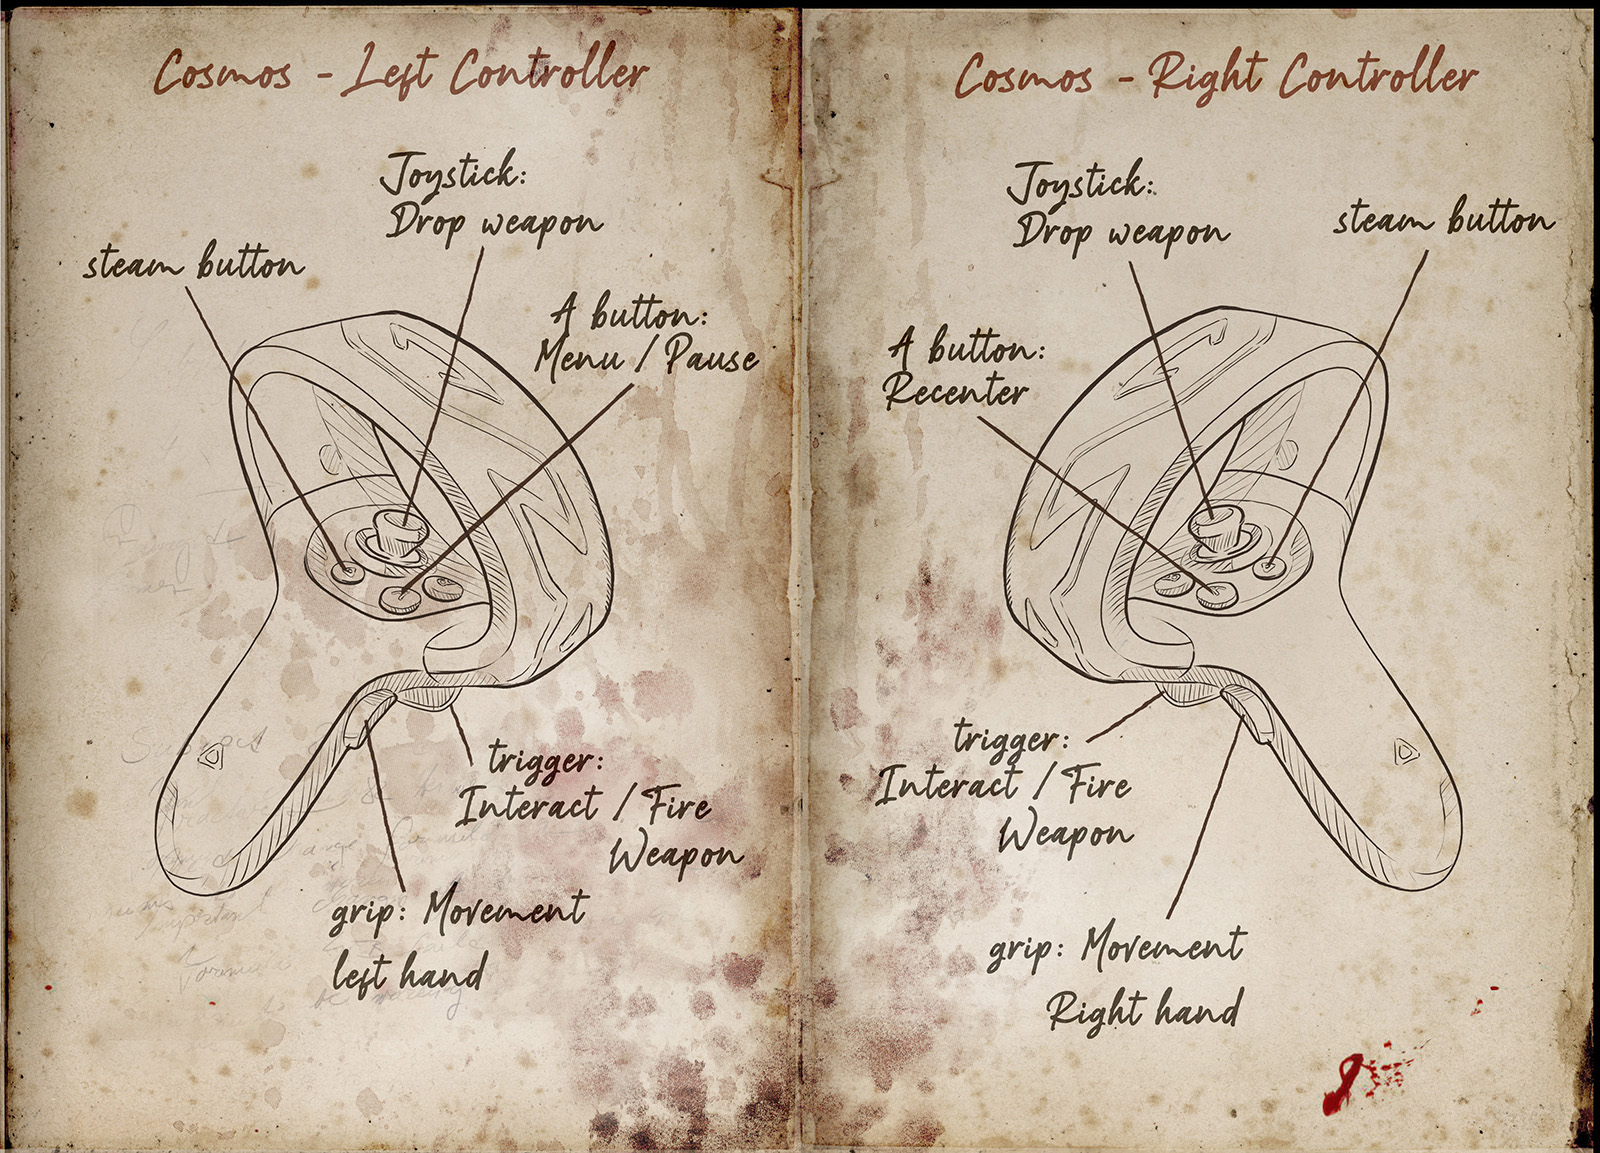 Cosmos - Left Controller
Joystick:
Drop weapon
steam button
A button:
Menu / Pause
trigger:
Interact / Fire
Weapon
grip: Movement
left hand
Cosmos - Right Controller
Joystick:
Drop weapon
steam button
A button:
Recenter
trigger:
Interact / Fire
Weapon
grip: Movement
Right hand